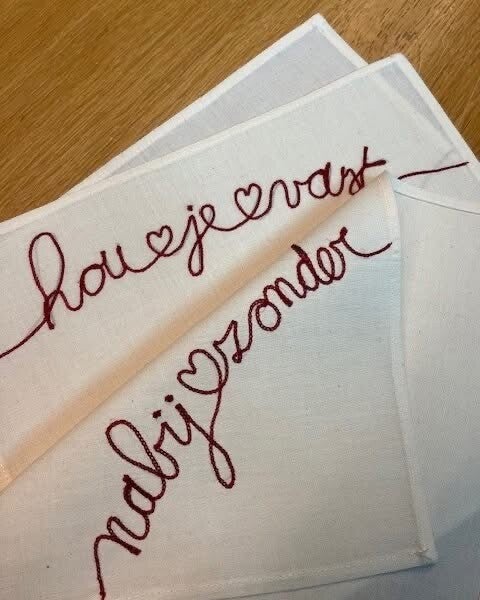 hou je vast
nabij zonder